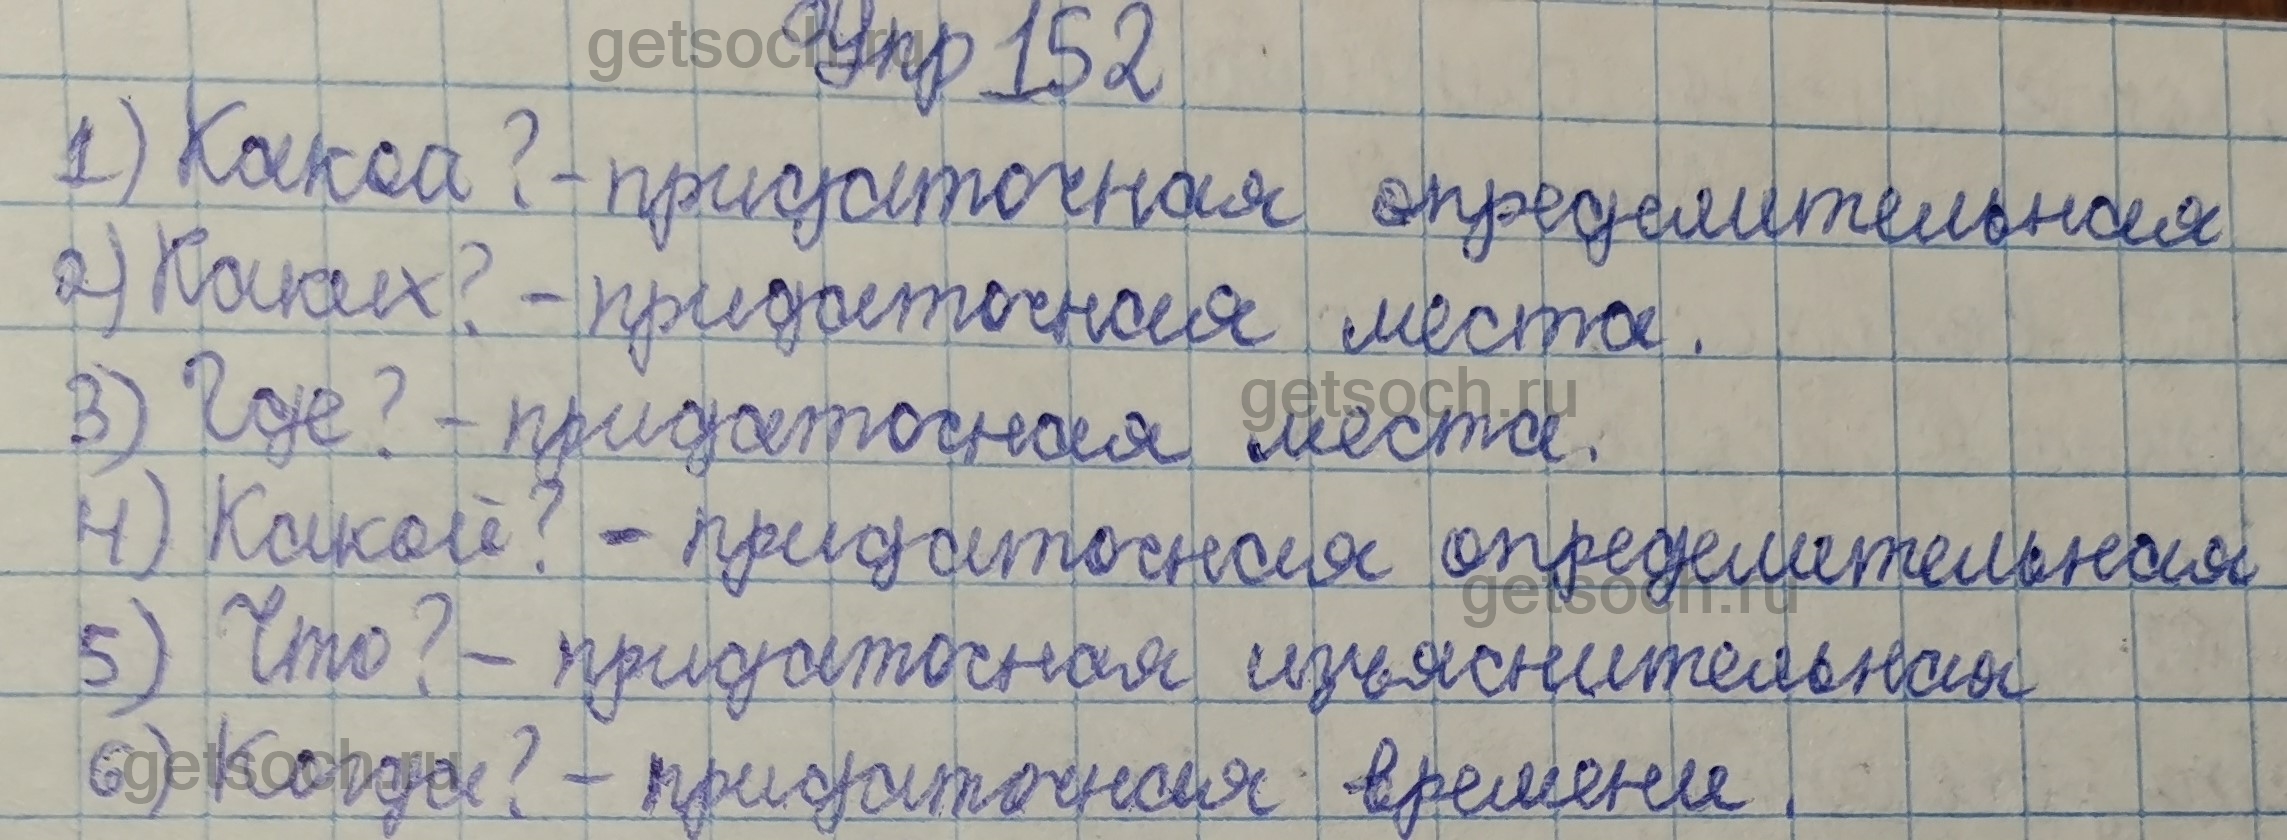 Упр 152
1) Какой? - придаточная определительная
2) Каких? - придаточная места.
3) Где? - придаточная места.
4) Какой? - придаточная определительная
5) Что? - придаточная изъяснительная
6) Когда? - придаточная времени.
getsoch.ru
getsoch.ru
getsoch.ru
getsoch.ru